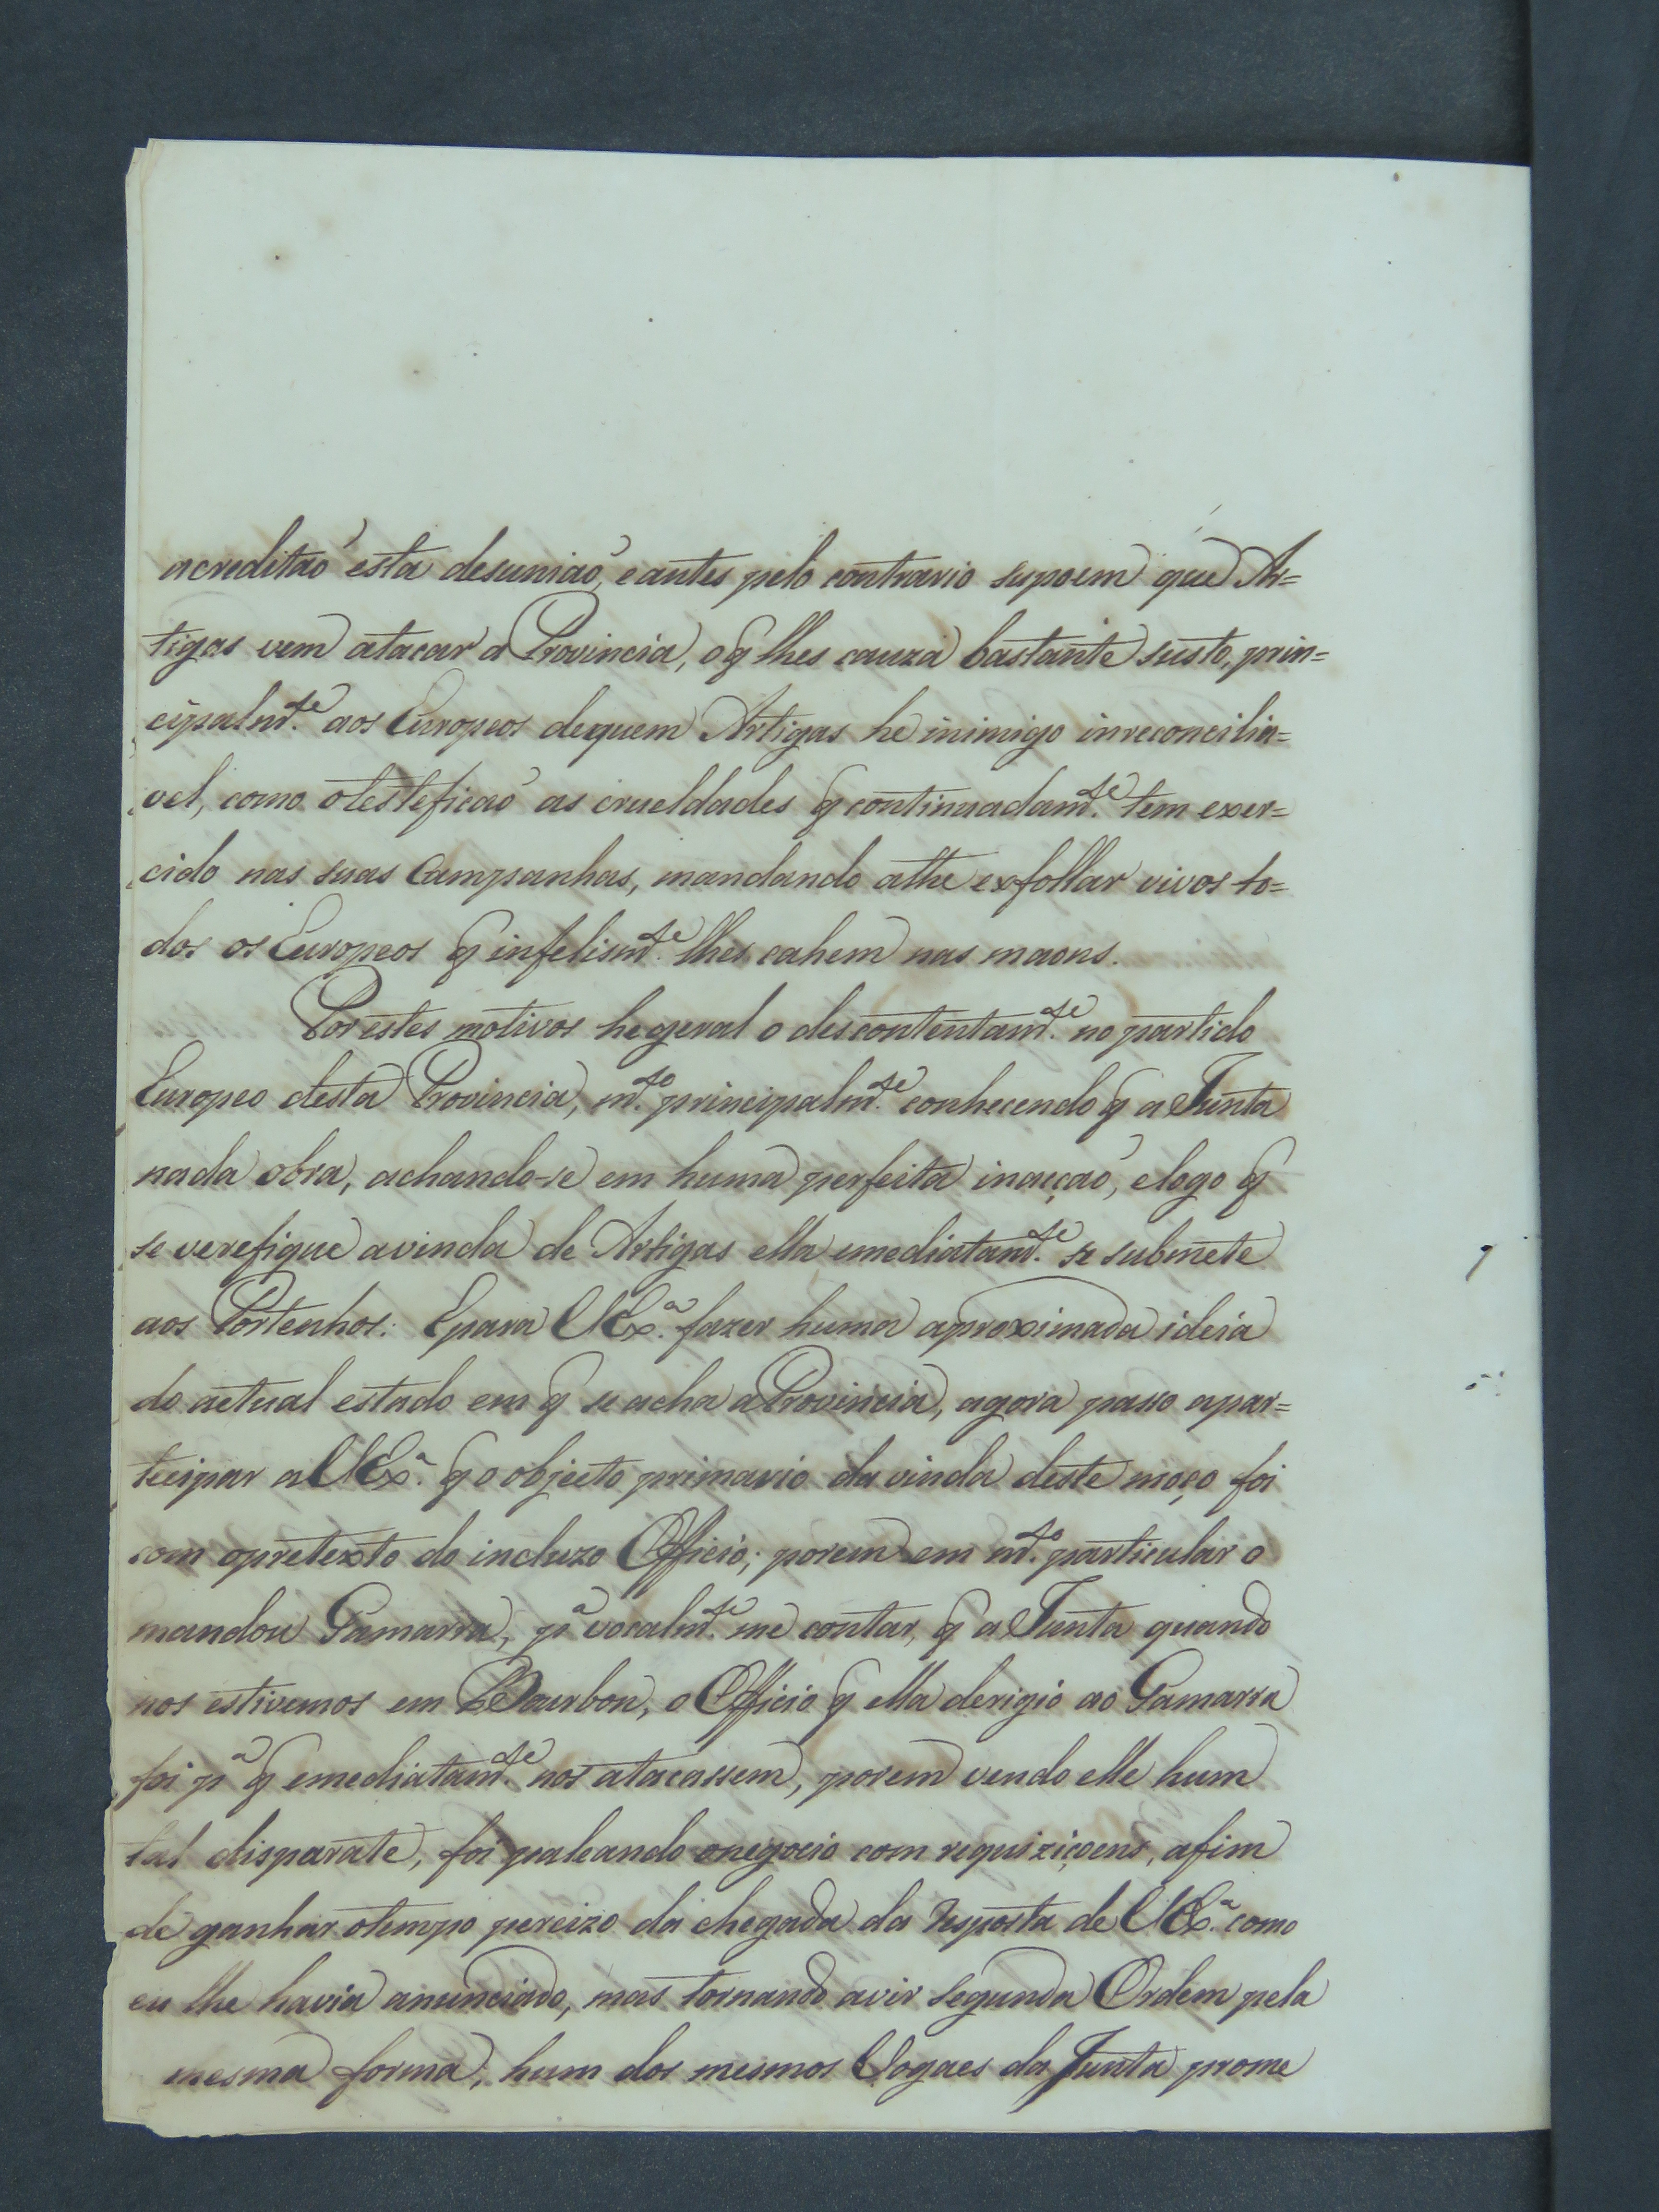 acreditaõ esta desuniaõ, e antes pelo contrario supoem que Ar=
tigas vem atacar a Provincia, o q̃ lhes cauza bastante susto, prin=
cipalm.te aos Europeos dequem Artigas he inimigo inreconcilia=
vel, como o testeficaõ as crueldades q̃ continuadam.te tem exer=
cido nas suas Campanhas, mandando athe exfollar vivos to=
dos os Europeos q̃ infelism.te lhes cahem nas maons.
Por estes motivos he geral o descontentam.to no partido
Europeo desta Provincia, m.to principalm.te conhecendo q̃ a Junta
nada obra, achando-se em huma perfeita inacçaõ, e logo q̃
se verefique avinda de Artigas ella emediatam.te se submete
aos Portenhos: E para V Ex.a fazer huma aproximada ideia
do actual estado em q̃ se acha a Provincia, agora passo apar=
tecipar a V Ex.a q̃ o objecto primario da vinda deste moço foi
com opretexto do incluzo Officio; porem em m.to particular o
mandou Gamarra, p.a vocalm.te me contar, q̃ a Junta quando
nos estivemos em Bourbon, o Officio q̃ ella derigio ao Gamarra
foi p.a q̃ emediatam.te nos atacassem, porem vendo elle hum
tal disparate, foi paleando onegocio com requiziçoens, afim
de ganhar otempo percizo da chegada da resposta de V Ex.a como
eu lhe havia anunciado, mas tornando avir segunda Ordem pela
mesma forma, hum dos mesmos Vogaes da Junta prome